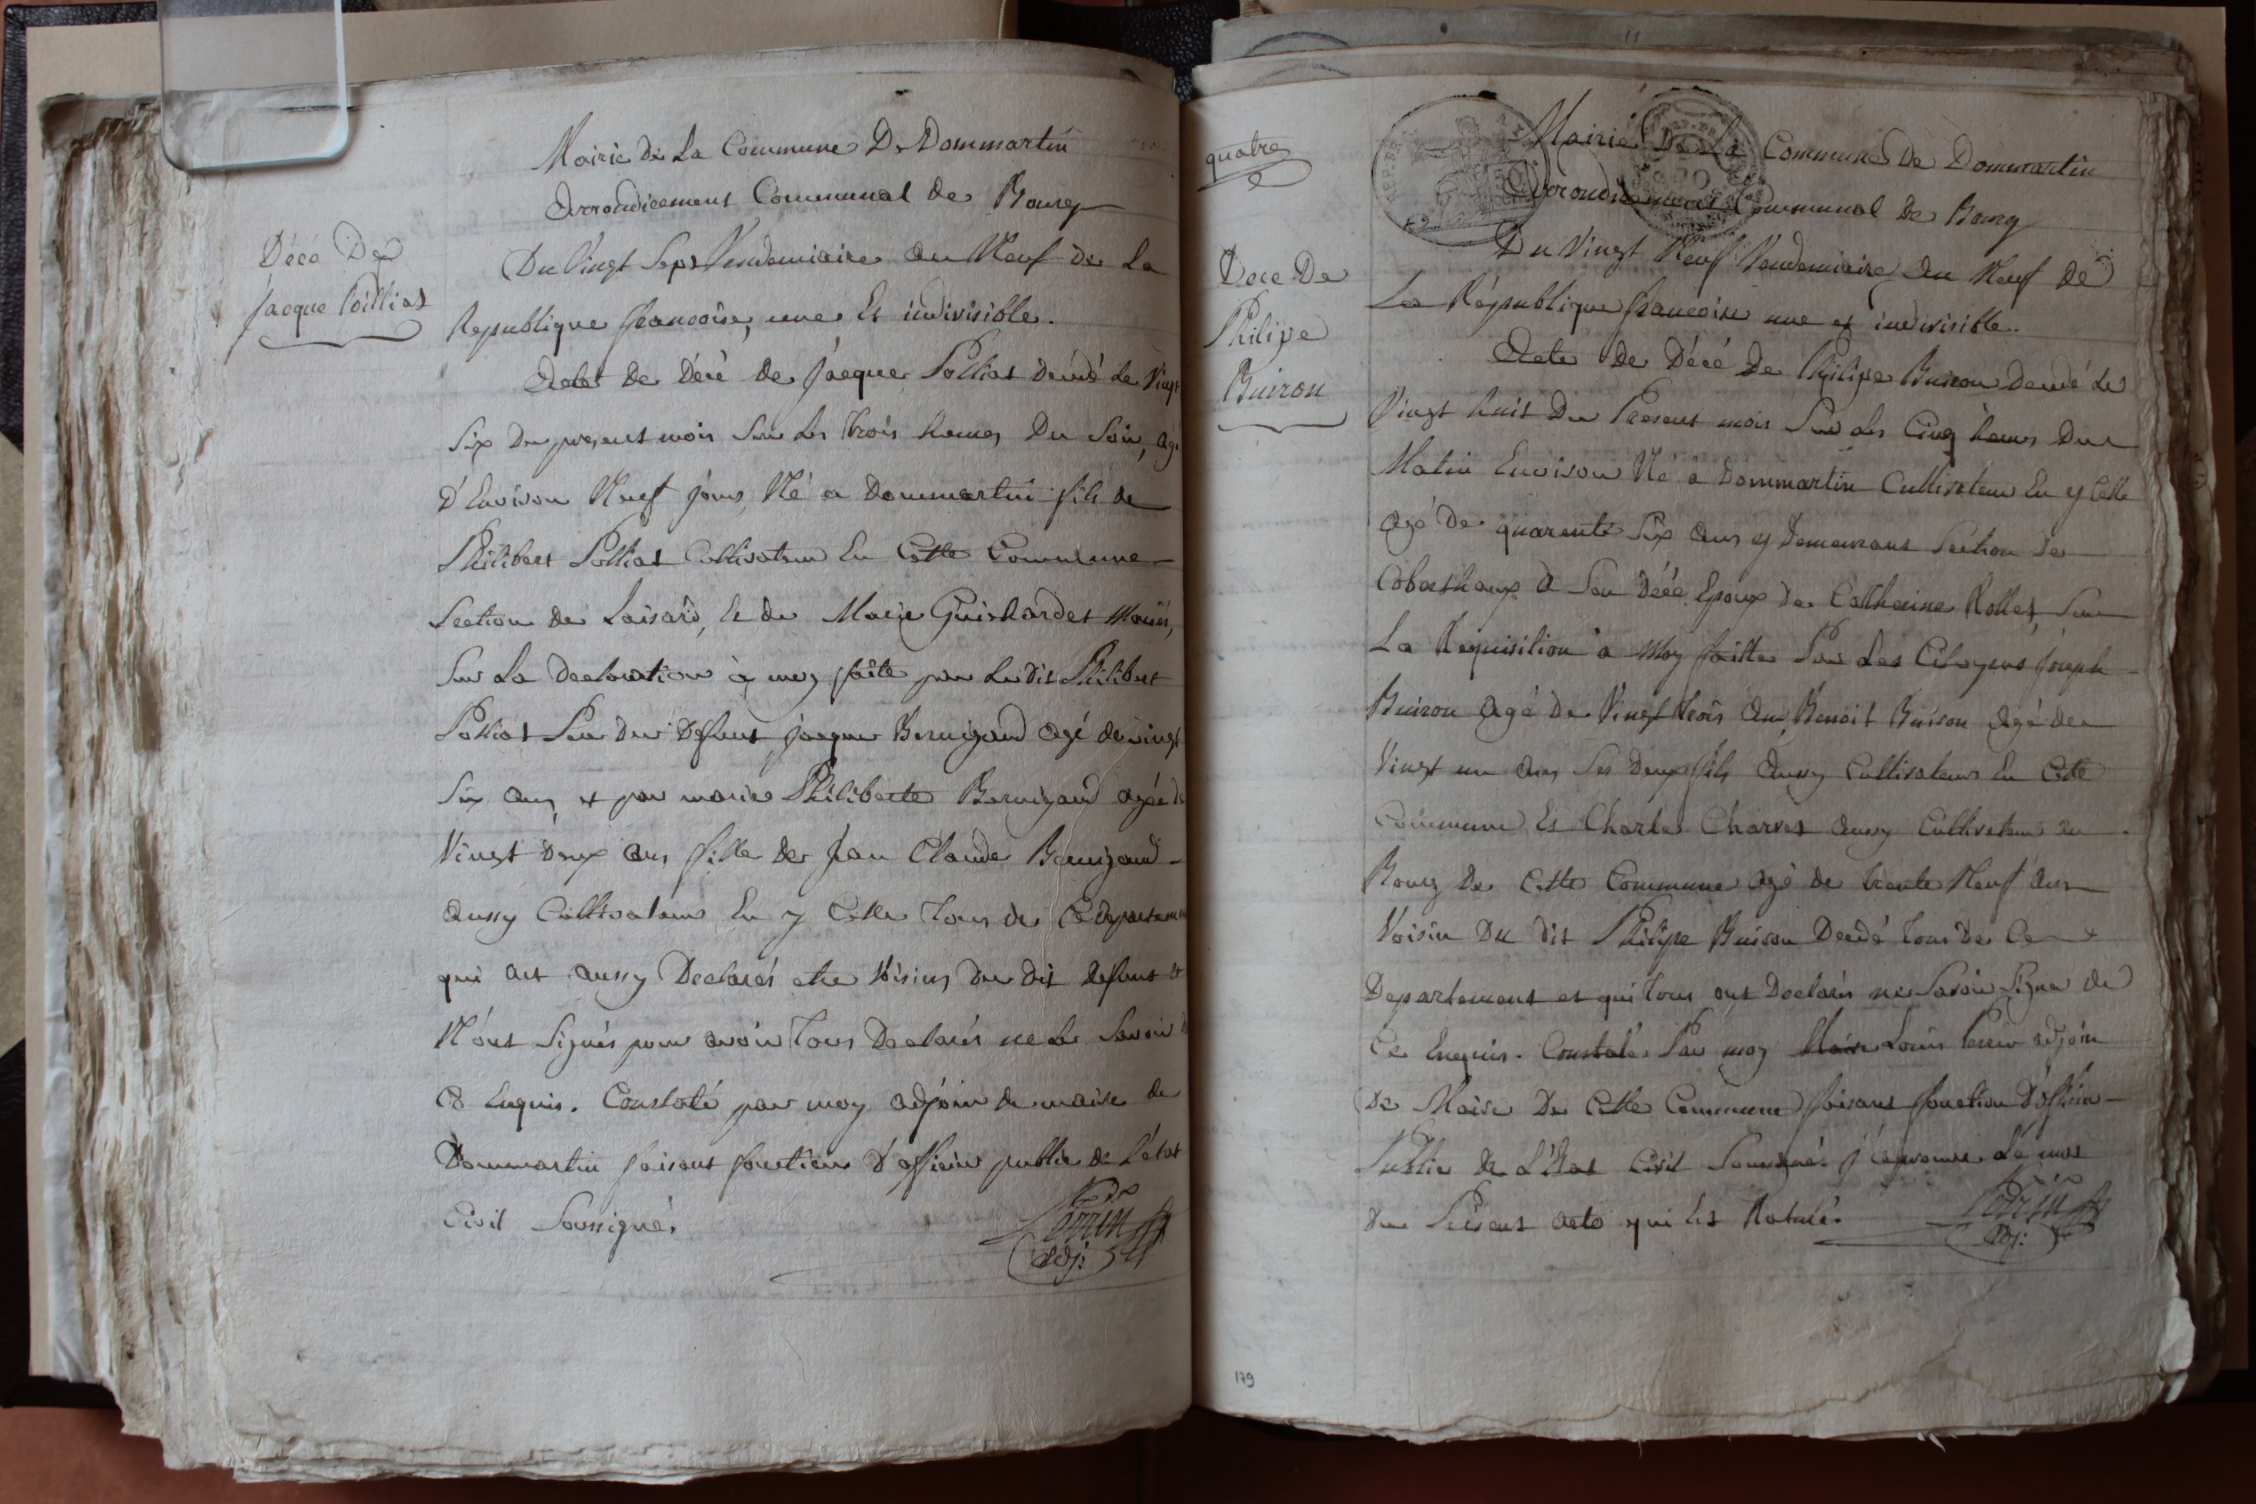 Mairie de La Commune De Dommartin
Arrondicement Communal de Bourg
Décé De
Jacque Polliat
Du Vingt Sept Vendemiaire an Neuf de La
Republique francoise, une Et indivisible.
Acte de Décé de Jacque Polliat décédé Le Vingt
Six du present mois Sur Les trois heures Du Soir, agé
D'Environ Neuf jours, Né a Dommartin fils de
Philibert Polliat Cultivateur En Cette Commune
Section de Loisard, et de Marie Guichardet mariés,
Sur La Declaration à moy faite par Le dit Philibert
Polliat Pere du Defunt Jacque Bernigaud agé de vingt
Six ans, et par marie Philiberte Bernigaud agée de
Vingt deux ans fille de Jean Claude Bernigaud
aussy Cultivateur En y Celle tous de Ce departement
qui ont aussy Declarés etre Voisins du dit defunt et
N'ont Signés pour avoir tous Declarés ne Le Savoir de
Ce Enquis. Constaté par moy adjoin de maire de
Dommartin faisant fonction d'officier public de L'état
Civil Soussigné.
Perrin
adj:
quatre
Mairie De La Commune De Dommartin
Arrondicement Communal De Bourg
Décé De
Philipe
Buiron
Du Vingt Neuf Vendemiaire an Neuf de
La République francoise une et indivisible.
Acte de Décé De Philipe Buiron Decedé Les
Vingt huit Du Present mois Sur Les Cinq heures Du
Matin Environ Né a Dommartin Cultivateur En y Celle
agé De quarente Six ans y Demeurant Section de
a Son Décé Epoux de Catherine Rollet, Sur
La Réquisition a Moy faitte Par Les Citoyens Joseph
Buiron agé De Vingt trois an, Benoit Buiron agé de
Vingt un ans Ses Deux fils aussy Cultivateurs En Cette
Commune Et Charle Charvet aussy Cultivateur au
Bourg De Cette Commune agé de trente Neuf ans
Voisin Du dit Philipe Buiron Decedé tous De Ce
Departement et qui tous ont Declarés ne Savoir Signer de
Ce Enquis. Constaté Par moy Maire Louis Perrin adjoin
De Maire De Cette Commune faisant fonction D'officier
Public de L'Etat Civil Soussigné. J'approuve
du Present acte qui Est
Perrin
adj:
179